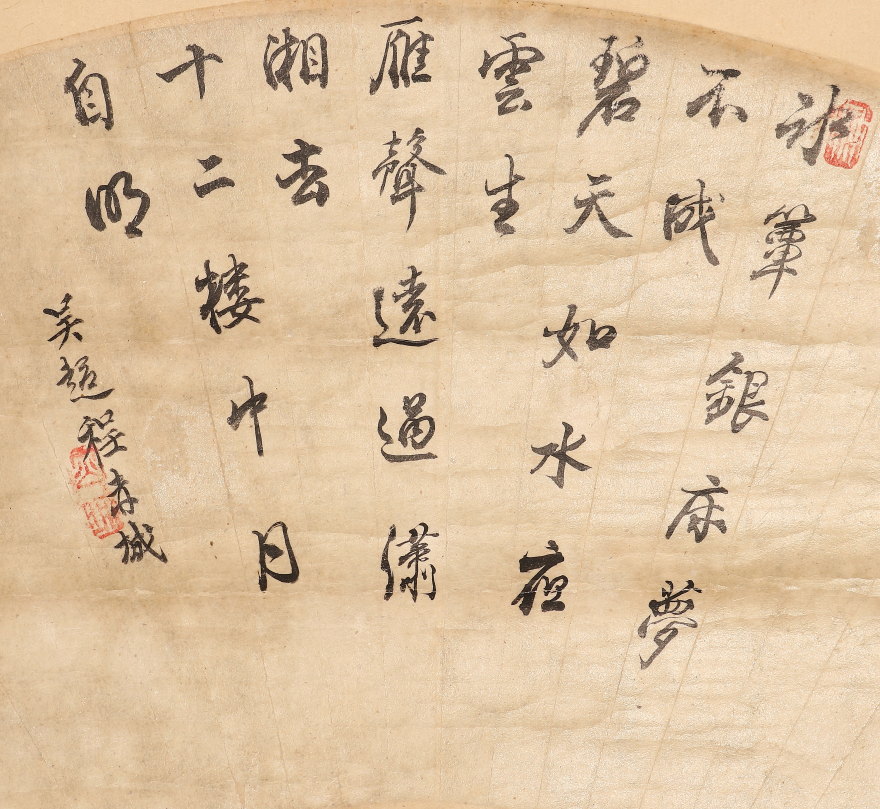 冰簟銀床夢
不成
碧天如水夜
雲生
雁聲遠過瀟
湘去
十二楼中月
自明
吳趨程城